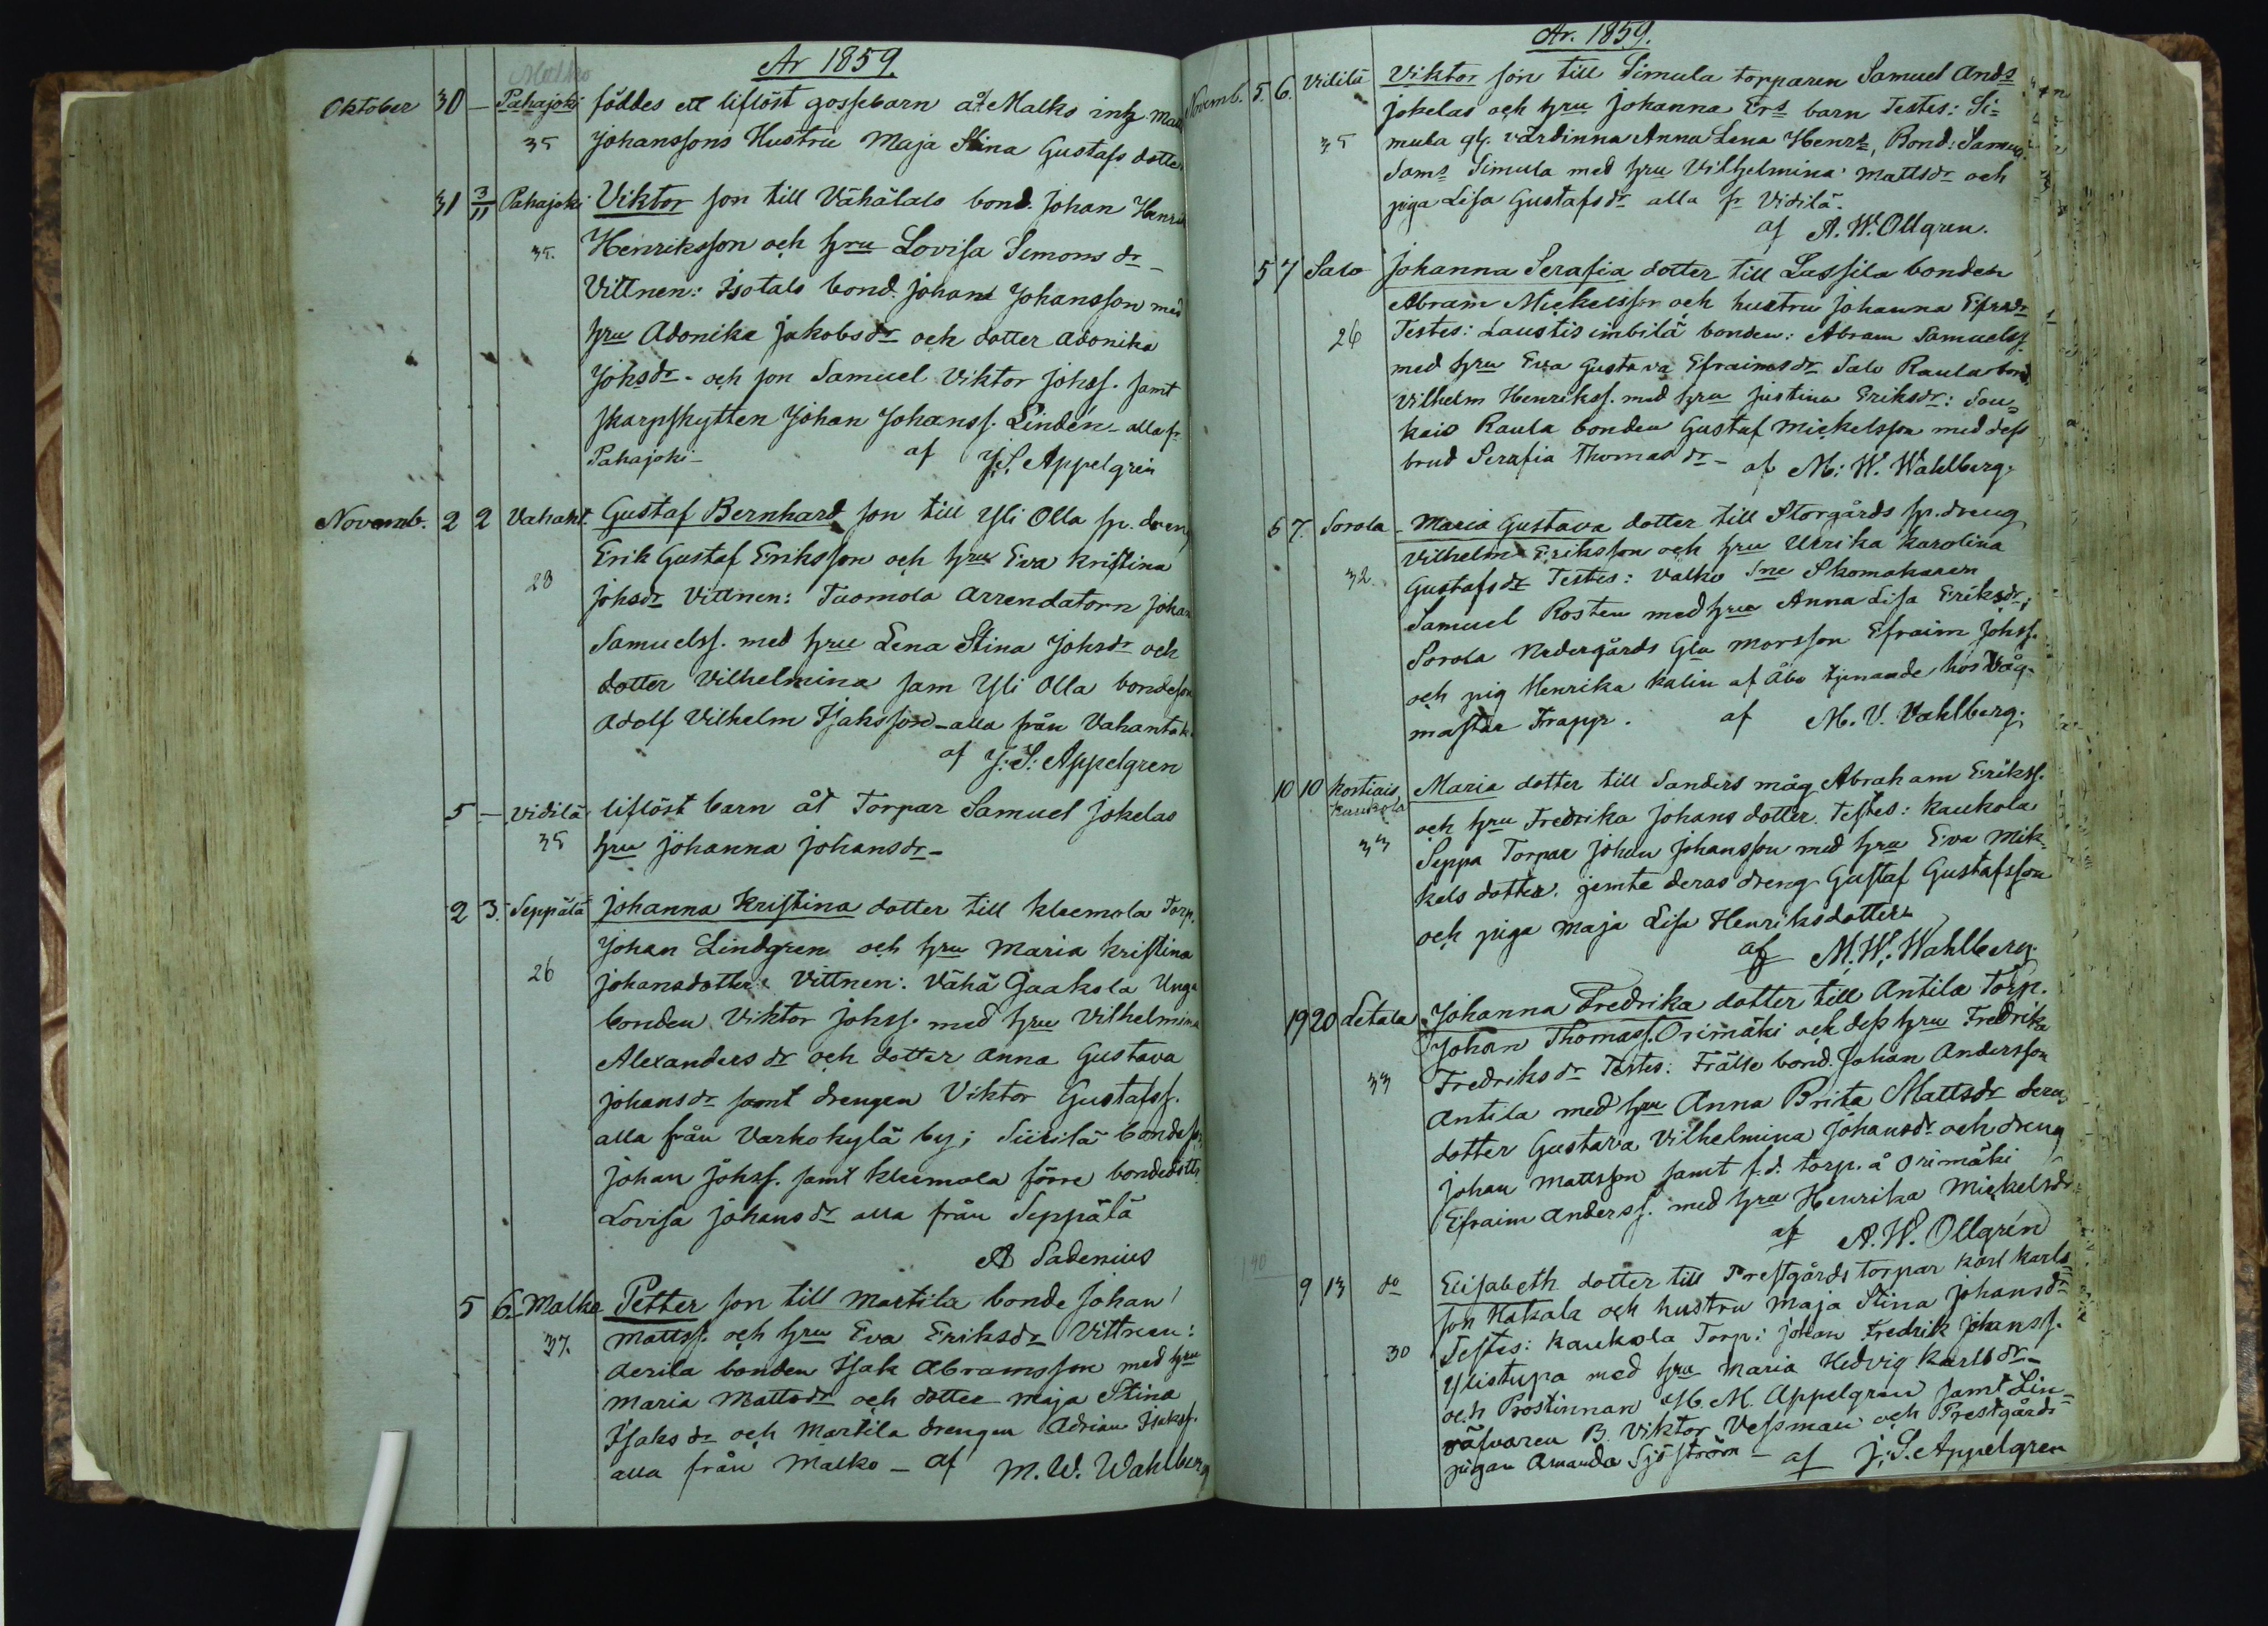 Ar 1859.
Malko
Oktober 30 — Pahajoki föddes ett liflöst gossebarn åt Malko inh. Matts
35 Johanssons Hustru Maja Stina Gustafs dotter
31 3/11 Pahajoki Viktor son till Vähätalo bond. Johan Henrik
35. Henriksson och hru Lovisa Simons dr –
Vittnen: Isotalo bond. Johan Johansson med
hru Adonika Jakobsdr och dotter Adonika
Johsdr – och son Samuel Viktor Johss. samt
skarpskytten Johan Johanss. Lindén – alla fr.
Pahajoki – af J. S. Appelgren
Novemb. 2 2 Vahant. Gustaf Bernhard son till Yli Olla sp. dreng
Erik Gustaf Eriksson och hru Eva Kristina
28 Johsdr Vittnen: Tuomola Arrendatorn Johan
Samuelss. med hru Lena Stina Johsdr och
dotter Vilhelmina sam Yli Olla bondeson
Adolf Vilhelm Isaksson – alla från Vahantak
af J: S: Appelgren
5 — Vidilä liflöst barn åt Torpar Samuel Jokelas
35 hru Johanna Johansdr –
2 3. Seppälä Johanna Kristina dotter till Kleemola Torp.
Johan Lindgren och hru Maria Kristina
26 Johansdotter: Vittnen: Vähä Jaakola Unga
bonden Viktor Johss. med hru Vilhelmina
Alexanders dr och dotter Anna Gustava
Johansdr samt drengen Viktor Gustafss.
alla från Varhokylä by; Siirilä bondeson
Johan Johss. samt Kleemola förre bondedottr.
Lovisa Johansdr alla från Seppälä
A Sadenius
5 6. Malko Petter son till Martila bonde Johan
37. Mattss. och hru Eva Eriksdr Vittnen:
Aerila bonden Isak Abramsson med hru
Maria Mattsdr och dotter Maja Stina
Isaksdr och Martila drengen Adrian Isakss.
alla från Malko – af M. W. Wahlberg
Ar. 1859.
Novemb. 5. 6. Vidilä Viktor son till Simula torparen Samuel Ands
Jokelas och hru Johanna Ers barn Testes: Si=
35 mula gl. värdinna Anna Lena Henrs, Bond: Samuel
Sams Simula med hru Vilhelmina Mattsdr och
piga Lisa Gustafsdr alla fr Vidilä.
af A. W. Ollgren.
5 7 Salo Johanna Serafia dotter till Lassila bonden
Abram Mickelsson och hustru Johanna Efrsdr
26 Testes: Laustis imbilä bonden: Abram Samuelss.
med hru Eva Gustava Efraimsdr Salo Raula bond.
Vilhelm Henrikss. med hru Justina Eriksdr: Sou=
kais Raula bonden Gustaf Mickelsson med dess
brud Serafia Thomasdr – af M: W. Wahlberg.
6 7. Sorola Maria Gustava dotter till Storgårds sp. dreng
Vilhelm Eriksson och hru Ulrika Karolina
32. Gustafsdr Testes: Valko Sne Skomakaren
Samuel Rosten med hru Anna Lisa Eriksdr;
Sorola Nedergårds Gla Morsson Efraim Johss.
och pig Henrika Kalin af Åbo tjenande hos Våg-
mastar Trapp. af M. V. Vahlberg.
10 10 Kostiais Maria dotter till Sanders måg Abraham Erikss.
Kaukola
och hru Fredrika Johans dotter. Testes: Kaukola
33 Seppä Torpar Johan Johansson med hru Eva Mik-
kels dotter. jemte deras dreng Gustaf Gustafsson
och piga Maja Lisa Henriksdotter
af M. W. Wahlberg.
19 20 Letala Johanna Fredrika dotter till Antila Torp.
Johan Thomass. Orimäki och dess hru Fredrika
33 Fredriksdr Testes: Frälse bond. Johan Andersson
Antila med hru Anna Brita Mattsdr deras
dotter Gustava Vilhelmina Johansdr och dreng
Johan Mattsson samt f.d. torp. å Orimäki
Efraim Anderss. med hru Henrika Mickelsdr
af A. W. Ollgrén
190
9 13 do Elisabeth dotter till Prestgårds torpar Karl Karls
son Hakala och hustru Maja Stina Johansdr
30 Testes: Kaukola Torp: Johan Fredrik Johanss.
Ylistupa med hru Maria Hedvig Karlsdr –
och Prostinnan M. M. Appelgren samt Lin-
väfvaren B. Viktor Vessman och Prestgårds
pigan Amanda Sjöström – af J. S. Appelgren